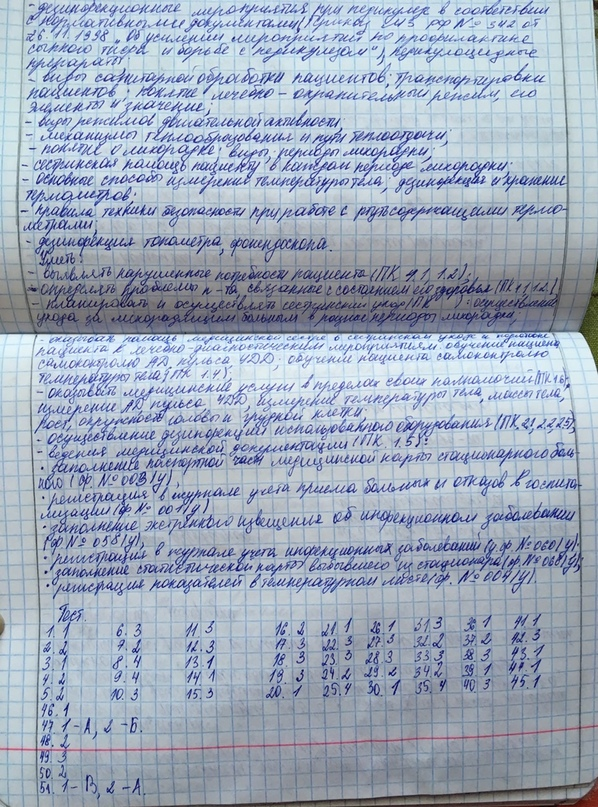 - дезинфекционные мероприятия при педикулезе в соответствии
с нормативными документами (Приказ МЗ РФ № 342 от
26.11.1998 „Об усилении мероприятий по профилактике
сыпного тифа и борьбе с педикулезом"), педикулоцидные
препараты;
- виды санитарной обработки пациентов; транспортировки
пациентов; понятие лечебно-охранительный режим, его
элементы и значение;
- виды режимов двигательной активности;
- механизмы теплообразования и пути теплоотдачи;
- понятие о лихорадке; виды, периоды лихорадки;
- сестринская помощь пациенту в каждом периоде лихорадки;
- основные способы измерения температуры тела, дезинфекция и хранение
термометров;
- правила техники безопасности при работе с ртутьсодержащими термо-
метрами;
- дезинфекция тонометра, фонендоскопа.
Уметь:
- выявлять нарушенные потребности пациента (ПК 1.1, 1.2);
- определять проблемы п-та связанные с состоянием его здоровья (ПК 1.1, 1.2)
- планировать и осуществлять сестринский уход (ПК ): осуществление
ухода за лихорадящим больным в разные периоды лихорадки;
пациента в лечебно-диагностическим мероприятиям обучение пациента
самоконтролю АД, пульса ЧДД, обучение пациента самоконтролю
температуры тела (ПК 1.4);
- оказывать медицинские услуги в пределах своих полномочий (ПК 1.6)
измерение АД, пульса ЧДД, измерение температуры тела, массы тела,
рост, окружности головы и грудной клетки;
- осуществление дезинфекции использованного оборудования (ПК 2.1, 2.2 2.5);
- ведения медицинской документации (ПК 1.5):
· заполнение паспортной части медицинской карты стационарного боль-
ного (ф. № 003/у);
· регистрация в журнале учета приема больных и отказов в госпита-
лизации (ф № 001/у)
· заполнение экстренного извещения об инфекционном заболевании
(ф № 058/у);
· регистрация в журнале учета инфекционных заболеваний (у. ф № 060/у);
· заполнение статистической карты выбывшего из стационара (ф № 066/у);
· регистрация показателей в температурном листе (ф. № 004/у).
Тест.
1. 1 6. 3 11. 3 16. 2 21. 1 26. 1 31. 3 36. 1 41. 1
2. 2 7. 2 12. 3 17. 3 22. 3 27. 3 32. 2 37. 2 42. 3
3. 1 8. 4 13. 1 18. 3 23. 3 28. 3 33. 3 38. 3 43. 1
4. 2 9. 4 14. 1 19. 3 24. 2 29. 2 34. 2 39. 1 44. 1
5. 2 10. 3 15. 3 20. 1 25. 4 30. 1 35. 4 40. 3 45. 1
46. 1
47. 1-А, 2-Б.
48. 2
49. 3
50. 2
51. 1-В, 2-А.